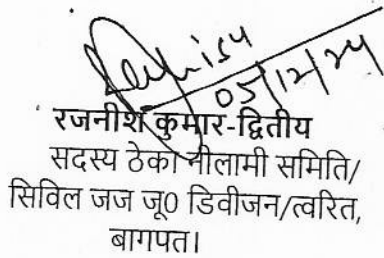 05/12/24
रजनीश कुमार-द्वितीय
सदस्य ठेका नीलामी समिति/
सिविल जज जू0 डिवीजन/त्वरित,
बागपत।